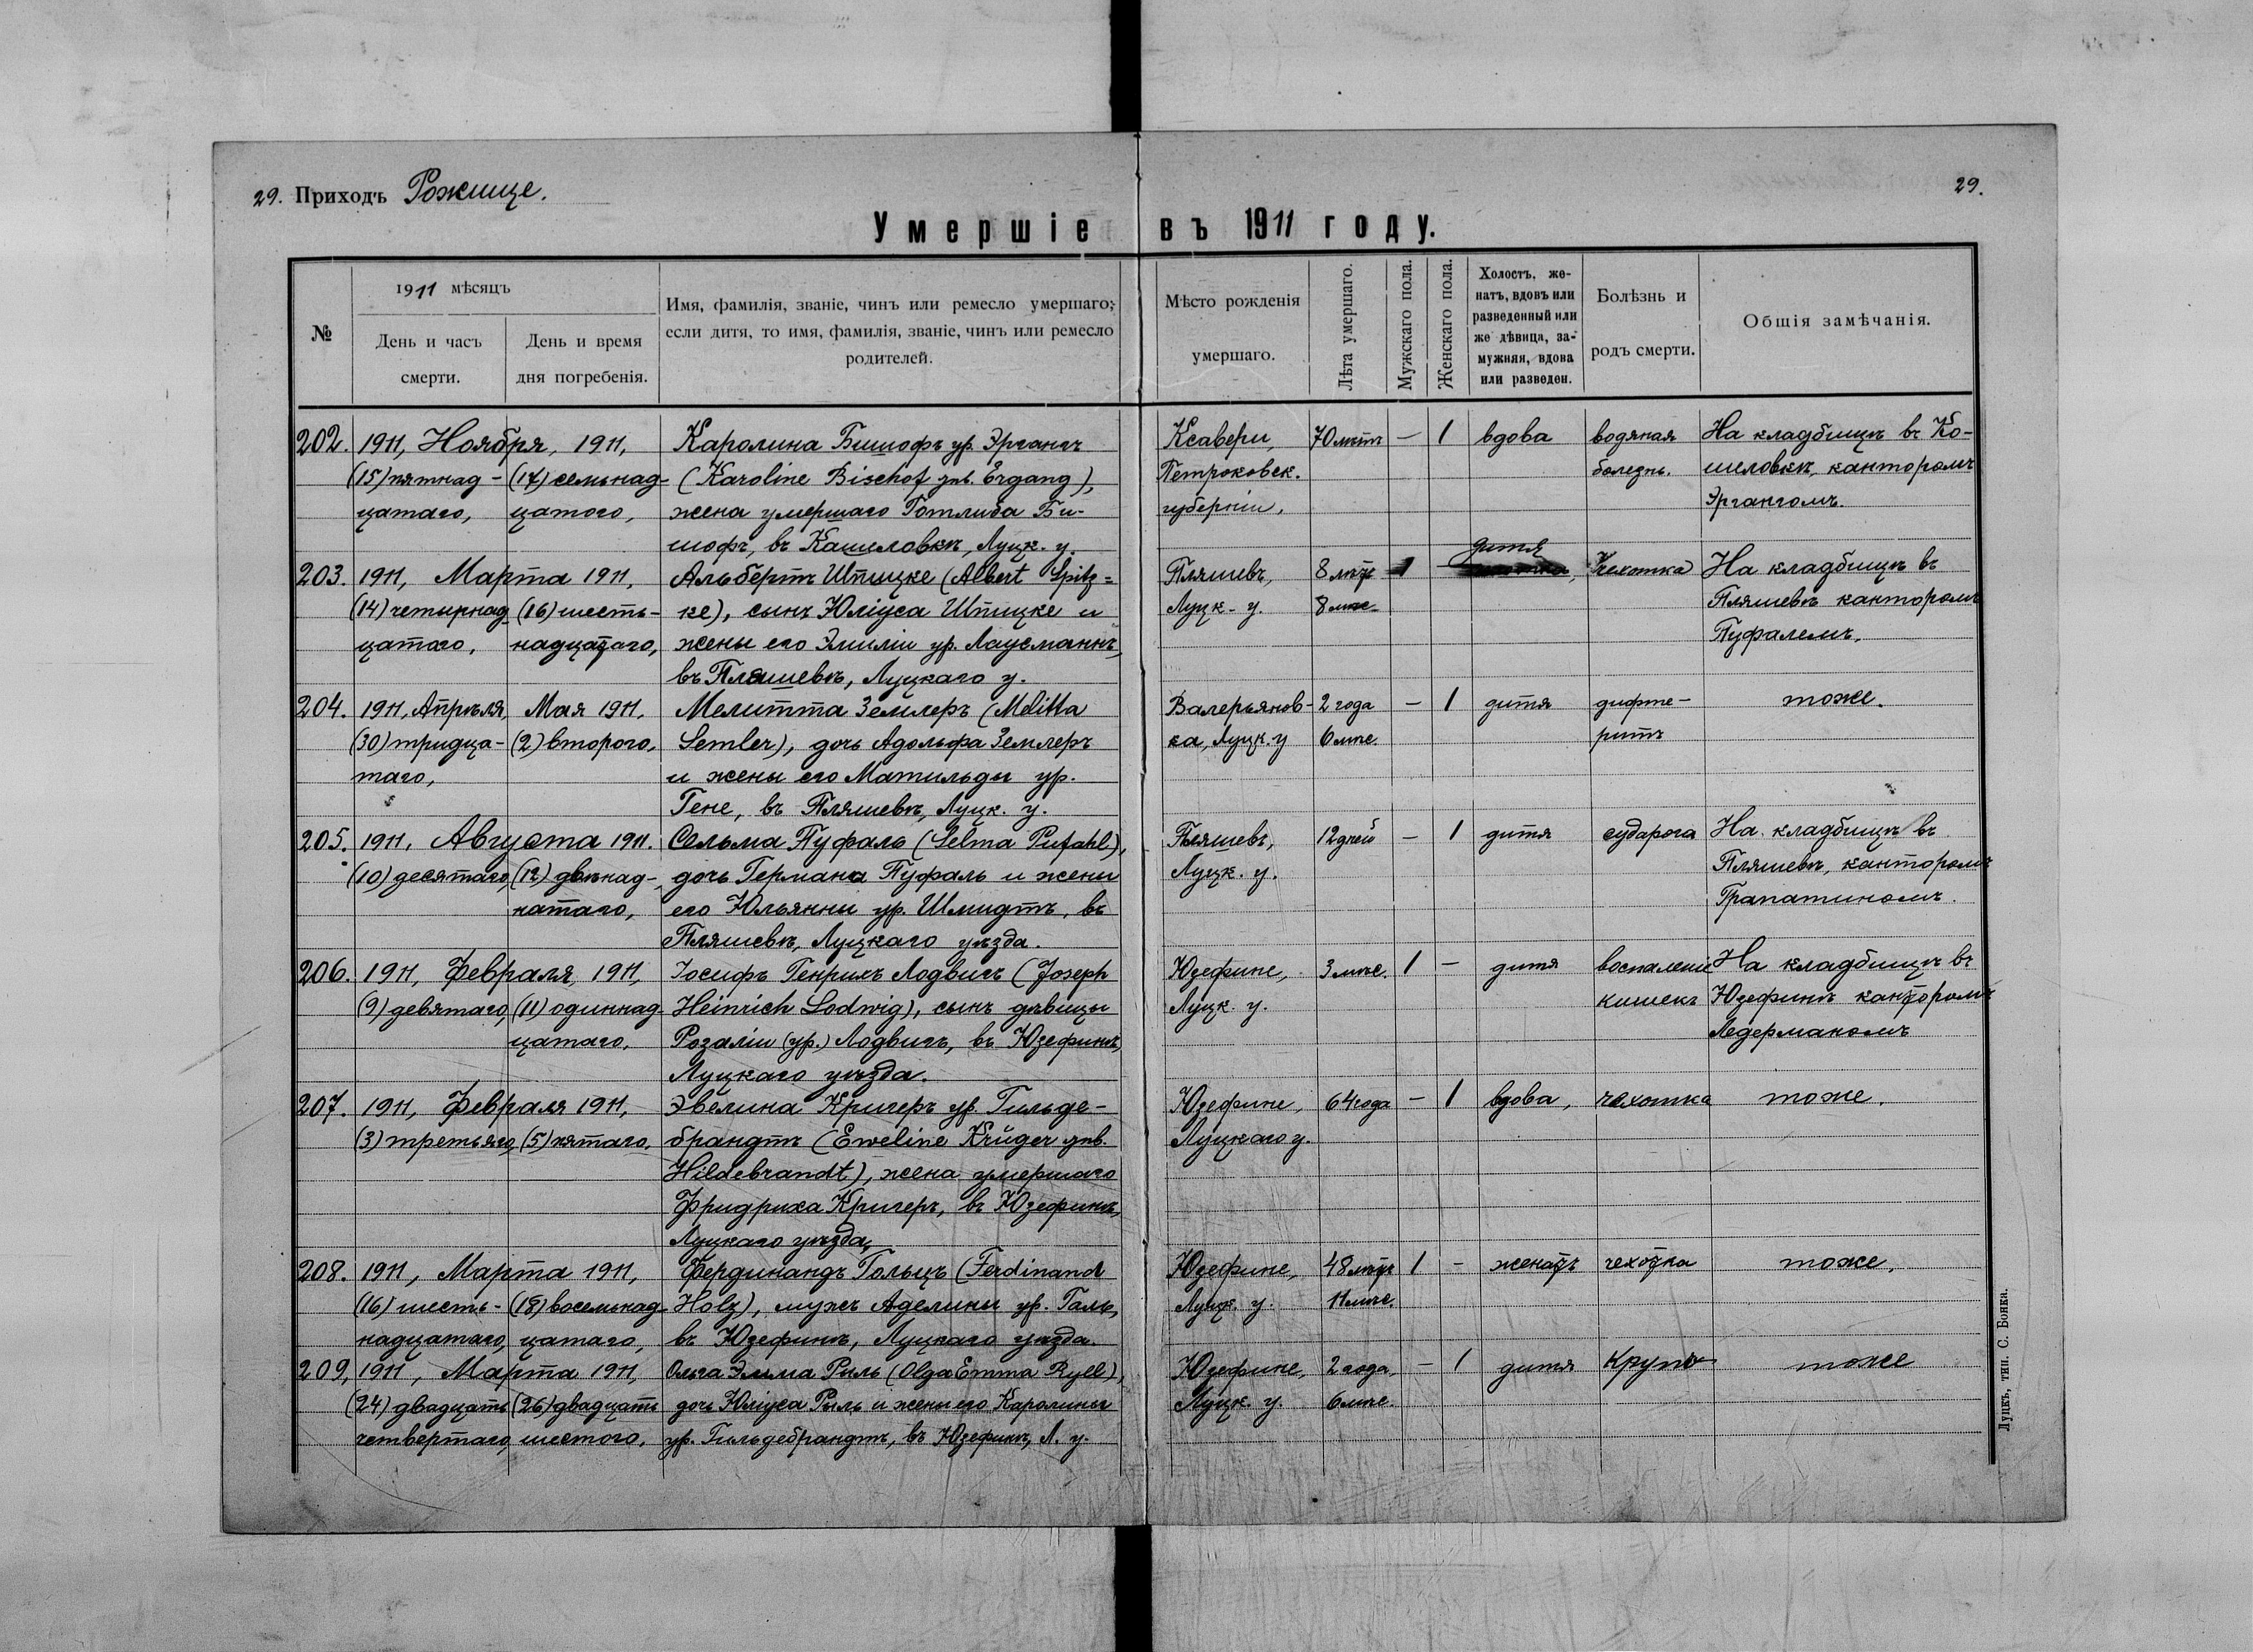 29. Приходъ Рожище.
29.
Умершіе въ 1911 году.
№
1911 мѣсяцъ
День и часъ
смерти.
День и время
дня погребенія.
Имя, фамилія, званіе, чинъ или ремесло умершаго;
если дитя, то имя, фамилія, званіе, чинъ или ремесло
родителей.
Мѣсто рожденія
умершаго.
Лѣта умершаго.
Мужскаго пола.
Женскаго пола.
Холостъ, же-
натъ, вдовъ или
разведенный или
же дѣвица, за-
мужняя, вдова
или разведен.
Болѣзнь и
родъ смерти.
Общія замѣчанія.
202. 1911, Ноября, 1911, Каролина Бишофъ ур. Эргангъ Ксавери, 70 лѣтъ — 1 вдова водяная На кладбищѣ въ Ко-
(15) пятнад- (17) семьнад- (Karoline Bischof geb. Ergang), Петроковск. болезнь. шиловкѣ, канторомъ
цатаго, цатого, жена умершаго Готлиба Би- губерніи, Эргангомъ.
шофъ, въ Кашиловкѣ, Луцк. у.
203. 1911, Марта 1911, Альбертъ Шпицке (Albert Spitz- Пляшевъ, 8 лѣтъ 1 дитя Чехотка На кладбищѣ въ
(14) четырнад- (16) шесть- ке), сынъ Юліуса Шпицке и Луцк. у. 8 мѣс. Пляшевѣ канторомъ
цатаго, надцатаго, жены его Эмиліи ур. Лаусманнъ, Пуфалемъ.
въ Пляшевѣ, Луцкаго у.
204. 1911, Апрѣля, Мая 1911, Мелитта Землеръ (Melitta Валерьянов- 2 года — 1 дитя дифте- тоже.
(30) тридца- (2) второго, Semler), дочь Адольфа Землеръ ка, Луцк. у 6 мѣс. ритъ
таго, и жены его Матильды ур.
Гене, въ Пляшевѣ, Луцк. у.
205. 1911, Августа 1911. Сельма Пуфаль (Selma Pufahl), Пляшевъ, 12 дней — 1 дитя сударога На кладбищѣ въ
(10) десятаго, (12) двѣнад- дочь Германа Пуфаль и жены Луцк. у. Пляшевѣ, канторомъ
натаго, его Юльянны ур. Шмидтъ, въ Грапатиномъ.
Пляшевѣ, Луцкаго уѣзда.
206. 1911, Февраля, 1911, Іосифъ Генрихъ Лодвигъ (Joseph Юзефине, 3 мѣс. 1 — дитя воспаленіе На кладбищѣ въ
(9) девятаго, (11) одиннад- Heinrich Lodwig), сынъ дѣвицы Луцк. у. кишекъ Юзефинѣ канторомъ
цатаго, Розаліи (ур.) Лодвигъ, въ Юзефинѣ, Ледерманомъ
Луцкаго уѣзда.
207. 1911, Февраля 1911, Эвелина Кригеръ ур. Гильде- Юзефине, 64 года — 1 вдова, чехотка тоже.
(3) третьяго, (5) пятаго, брандтъ (Eweline Krüger geb. Луцкаго у.
Hildebrandt), жена умершаго
Фридриха Кригеръ, въ Юзефинѣ,
Луцкаго уѣзда,
208. 1911, Марта 1911, Фердинандъ Гольцъ (Ferdinand Юзефине, 48 лѣтъ 1 — женатъ чехотка тоже.
(16) шесть- (18) восемьнад- Holz), мужъ Аделины ур. Галь, Луцк. у. 11 мѣс.
надцатаго, цатаго, въ Юзефинѣ, Луцкаго уѣзда.
209, 1911, Марта 1911, Ольга Эмма Рыль (Olga Emma Ryll), Юзефине, 2 года, — 1 дитя Крупъ тоже
(24) двадцать (26) двадцать дочь Юліуса Рыль и жены его Каролины Луцк. у. 6 мѣс.
четвертаго, шестого, ур. Гильдебрандтъ, въ Юзефинѣ, Л. у.
Луцкъ, тип. С. Бонка.